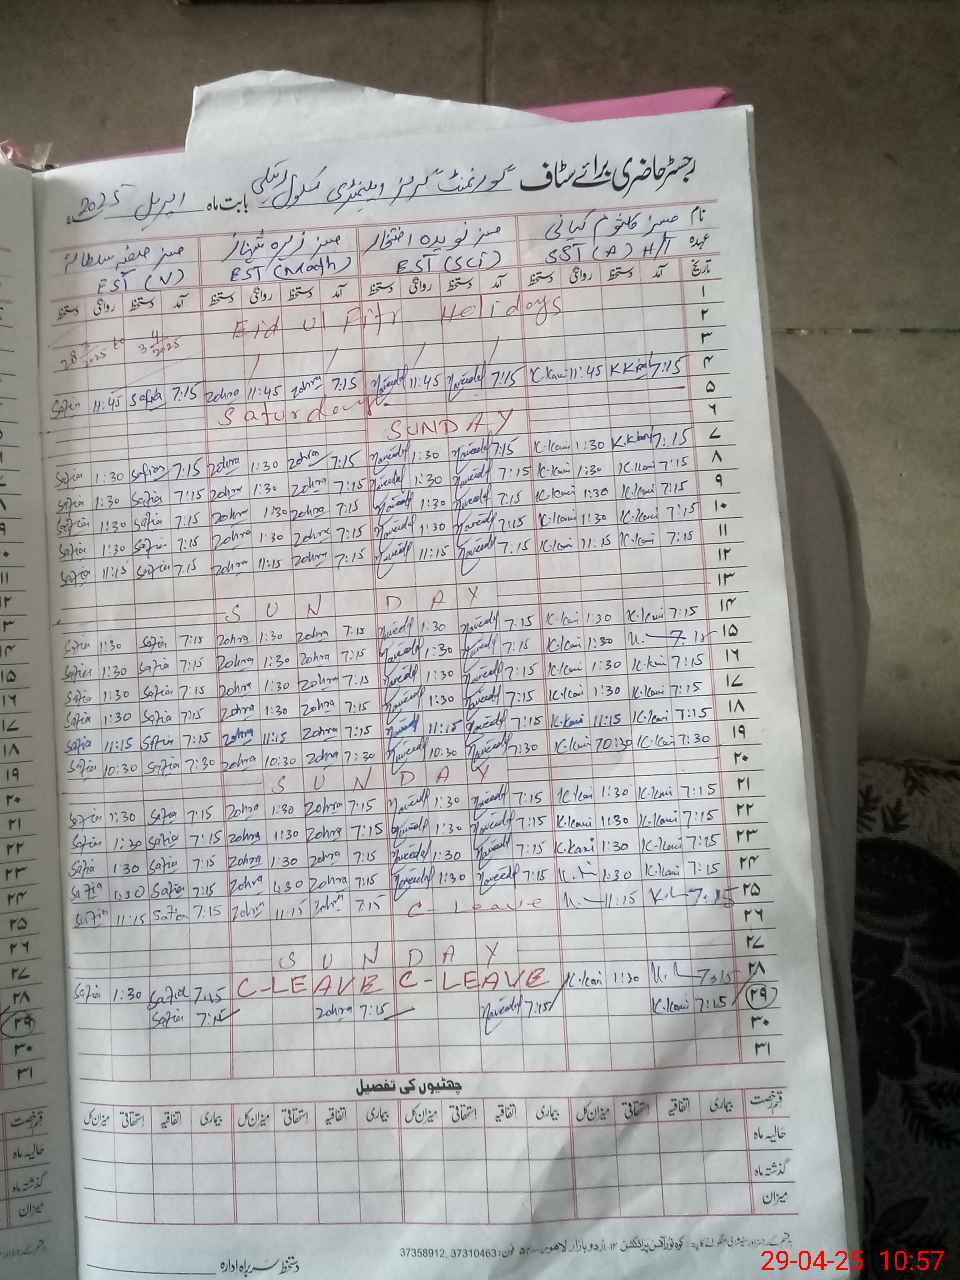 رجسٹر حاضری برائے سٹاف گورنمنٹ گرلز ایلیمنٹری سکول بابت ماہ اپریل 2025ء
نام مسز کلثوم کیانی مسز نویدہ افتخار مسز زہرہ شہناز مسز صفیہ سلطانہ
عہدہ SST (A) H/T EST (Sci) EST (Math) EST (V)
تاریخ آمد دستخط روانگی دستخط آمد دستخط روانگی دستخط آمد دستخط روانگی دستخط آمد دستخط روانگی دستخط
۱
۲ Eid ul Fitr Holidays
۳
۴ 7:15 K.Kani 11:45 K.Kani 7:15 Naveeda 11:45 Naveeda 7:15 Zohra 11:45 Zohra 7:15 Safia 11:45 Safia
۵ Saturday
۶ SUNDAY
۷ 7:15 K.Kani 1:30 K.Kani 7:15 Naveeda 1:30 Naveeda 7:15 Zohra 1:30 Zohra 7:15 Safia 1:30 Safia
۸ 7:15 K.Kani 1:30 K.Kani 7:15 Naveeda 1:30 Naveeda 7:15 Zohra 1:30 Zohra 7:15 Safia 1:30 Safia
۹ 7:15 K.Kani 1:30 K.Kani 7:15 Naveeda 1:30 Naveeda 7:15 Zohra 1:30 Zohra 7:15 Safia 1:30 Safia
۱۰ 7:15 K.Kani 1:30 K.Kani 7:15 Naveeda 1:30 Naveeda 7:15 Zohra 1:30 Zohra 7:15 Safia 1:30 Safia
۱۱ 7:15 K.Kani 11:15 K.Kani 7:15 Naveeda 11:15 Naveeda 7:15 Zohra 11:15 Zohra 7:15 Safia 11:15 Safia
۱۲
۱۳ SUN DAY
۱۴ 7:15 K.Kani 1:30 K.Kani 7:15 Naveeda 1:30 Naveeda 7:15 Zohra 1:30 Zohra 7:15 Safia 1:30 Safia
۱۵ 7:15 1:30 K.Kani 7:15 Naveeda 1:30 Naveeda 7:15 Zohra 1:30 Zohra 7:15 Safia 1:30 Safia
۱۶ 7:15 K.Kani 1:30 K.Kani 7:15 Naveeda 1:30 Naveeda 7:15 Zohra 1:30 Zohra 7:15 Safia 1:30 Safia
۱۷ 7:15 K.Kani 1:30 K.Kani 7:15 Naveeda 1:30 Naveeda 7:15 Zohra 1:30 Zohra 7:15 Safia 1:30 Safia
۱۸ 7:15 K.Kani 11:15 K.Kani 7:15 Naveeda 11:15 Naveeda 7:15 Zohra 11:15 Zohra 7:15 Safia 11:15 Safia
۱۹ 7:30 K.Kani 10:30 K.Kani 7:30 Naveeda 10:30 Naveeda 7:30 Zohra 10:30 Zohra 7:30 Safia 10:30 Safia
۲۰ SUN DAY
۲۱ 7:15 K.Kani 1:30 K.Kani 7:15 Naveeda 1:30 Naveeda 7:15 Zohra 1:30 Zohra 7:15 Safia 1:30 Safia
۲۲ 7:15 K.Kani 1:30 K.Kani 7:15 Naveeda 1:30 Naveeda 7:15 Zohra 1:30 Zohra 7:15 Safia 1:30 Safia
۲۳ 7:15 K.Kani 1:30 K.Kani 7:15 Naveeda 1:30 Naveeda 7:15 Zohra 1:30 Zohra 7:15 Safia 1:30 Safia
۲۴ 7:15 K.Kani 1:30 7:15 Naveeda 1:30 Naveeda 7:15 Zohra 1:30 Zohra 7:15 Safia 1:30 Safia
۲۵ 7:15 11:15 C-Leave 7:15 Zohra 11:15 Zohra 7:15 Safia 11:15 Safia
۲۶
۲۷ SUN DAY
۲۸ 7:15 1:30 K.Kani C-LEAVE C-LEAVE 7:15 Safia 1:30 Safia
۲۹ 7:15 K.Kani 7:15 Naveeda 7:15 Zohra 7:15 Safia
۳۰
۳۱
چھٹیوں کی تفصیل
قسم رخصت بیماری اتفاقیہ استحقاقی میزان کل بیماری اتفاقیہ استحقاقی میزان کل بیماری اتفاقیہ استحقاقی میزان کل بیماری اتفاقیہ استحقاقی میزان کل
حالیہ ماہ
گذشتہ ماہ
میزان
اردو بازار لاہور۔ فون: 37310463, 37358912
دستخط سربراہ ادارہ
29-04-25 10:57